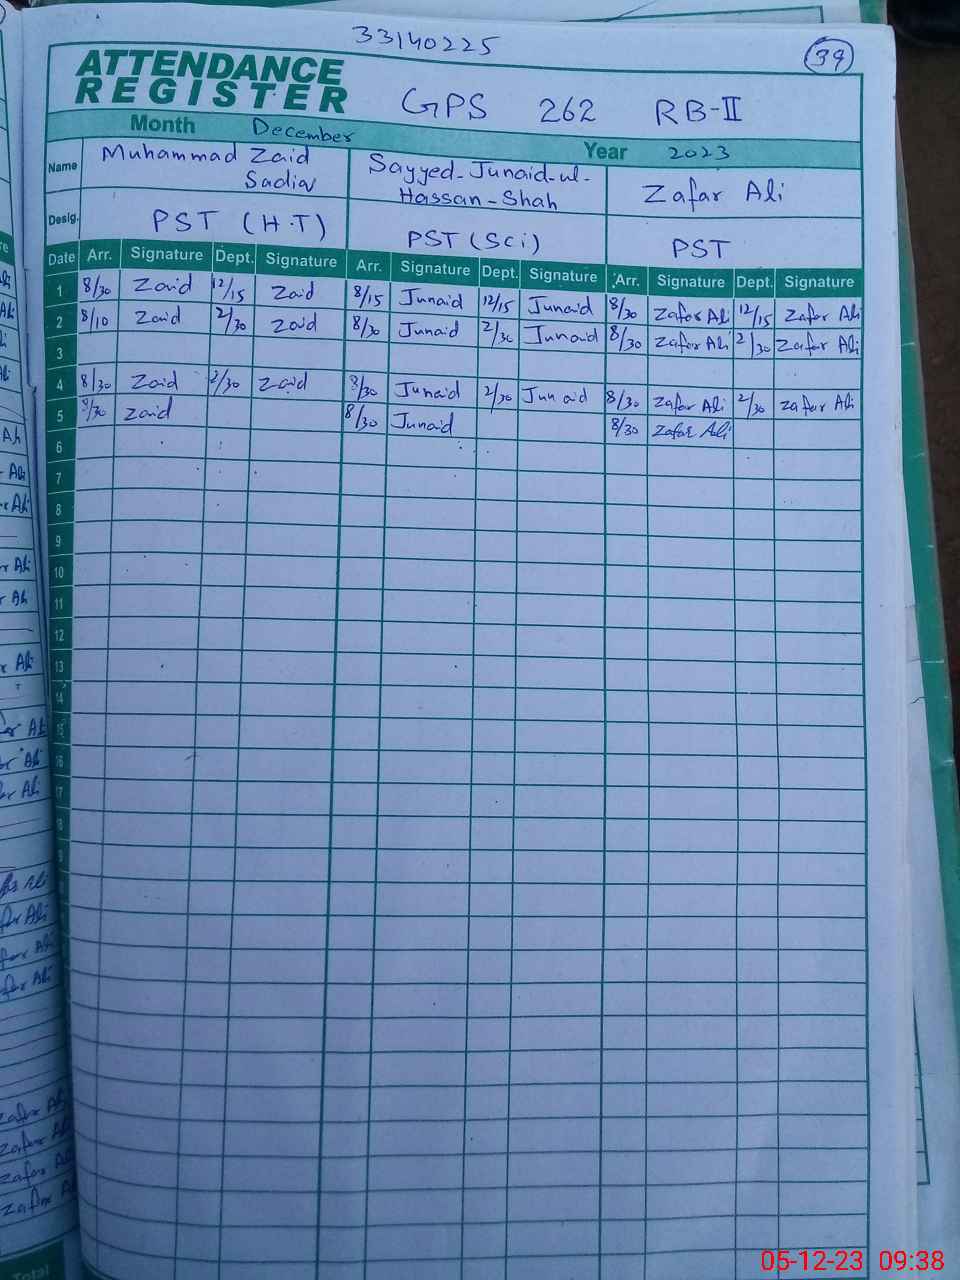 33140225
39
ATTENDANCE
REGISTER
GPS 262 RB-II
Month December Year 2023
Name Muhammad Zaid Sadiq Sayyed-Junaid-ul-Hassan-Shah Zafar Ali
Desig. PST (H.T) PST (Sci) PST
Date Arr. Signature Dept. Signature Arr. Signature Dept. Signature Arr. Signature Dept. Signature
1 8/30 Zaid 12/15 Zaid 8/15 Junaid 12/15 Junaid 8/30 Zafar Ali 12/15 Zafar Ali
2 8/10 Zaid 2/30 Zaid 8/30 Junaid 2/30 Junaid 8/30 Zafar Ali 2/30 Zafar Ali
3
4 8/30 Zaid 2/30 Zaid 8/30 Junaid 2/30 Junaid 8/30 Zafar Ali 2/30 Zafar Ali
5 8/30 Zaid 8/30 Junaid 8/30 Zafar Ali
6
7
8
9
10
11
12
13
14
15
16
17
18
Total
05-12-23 09:38